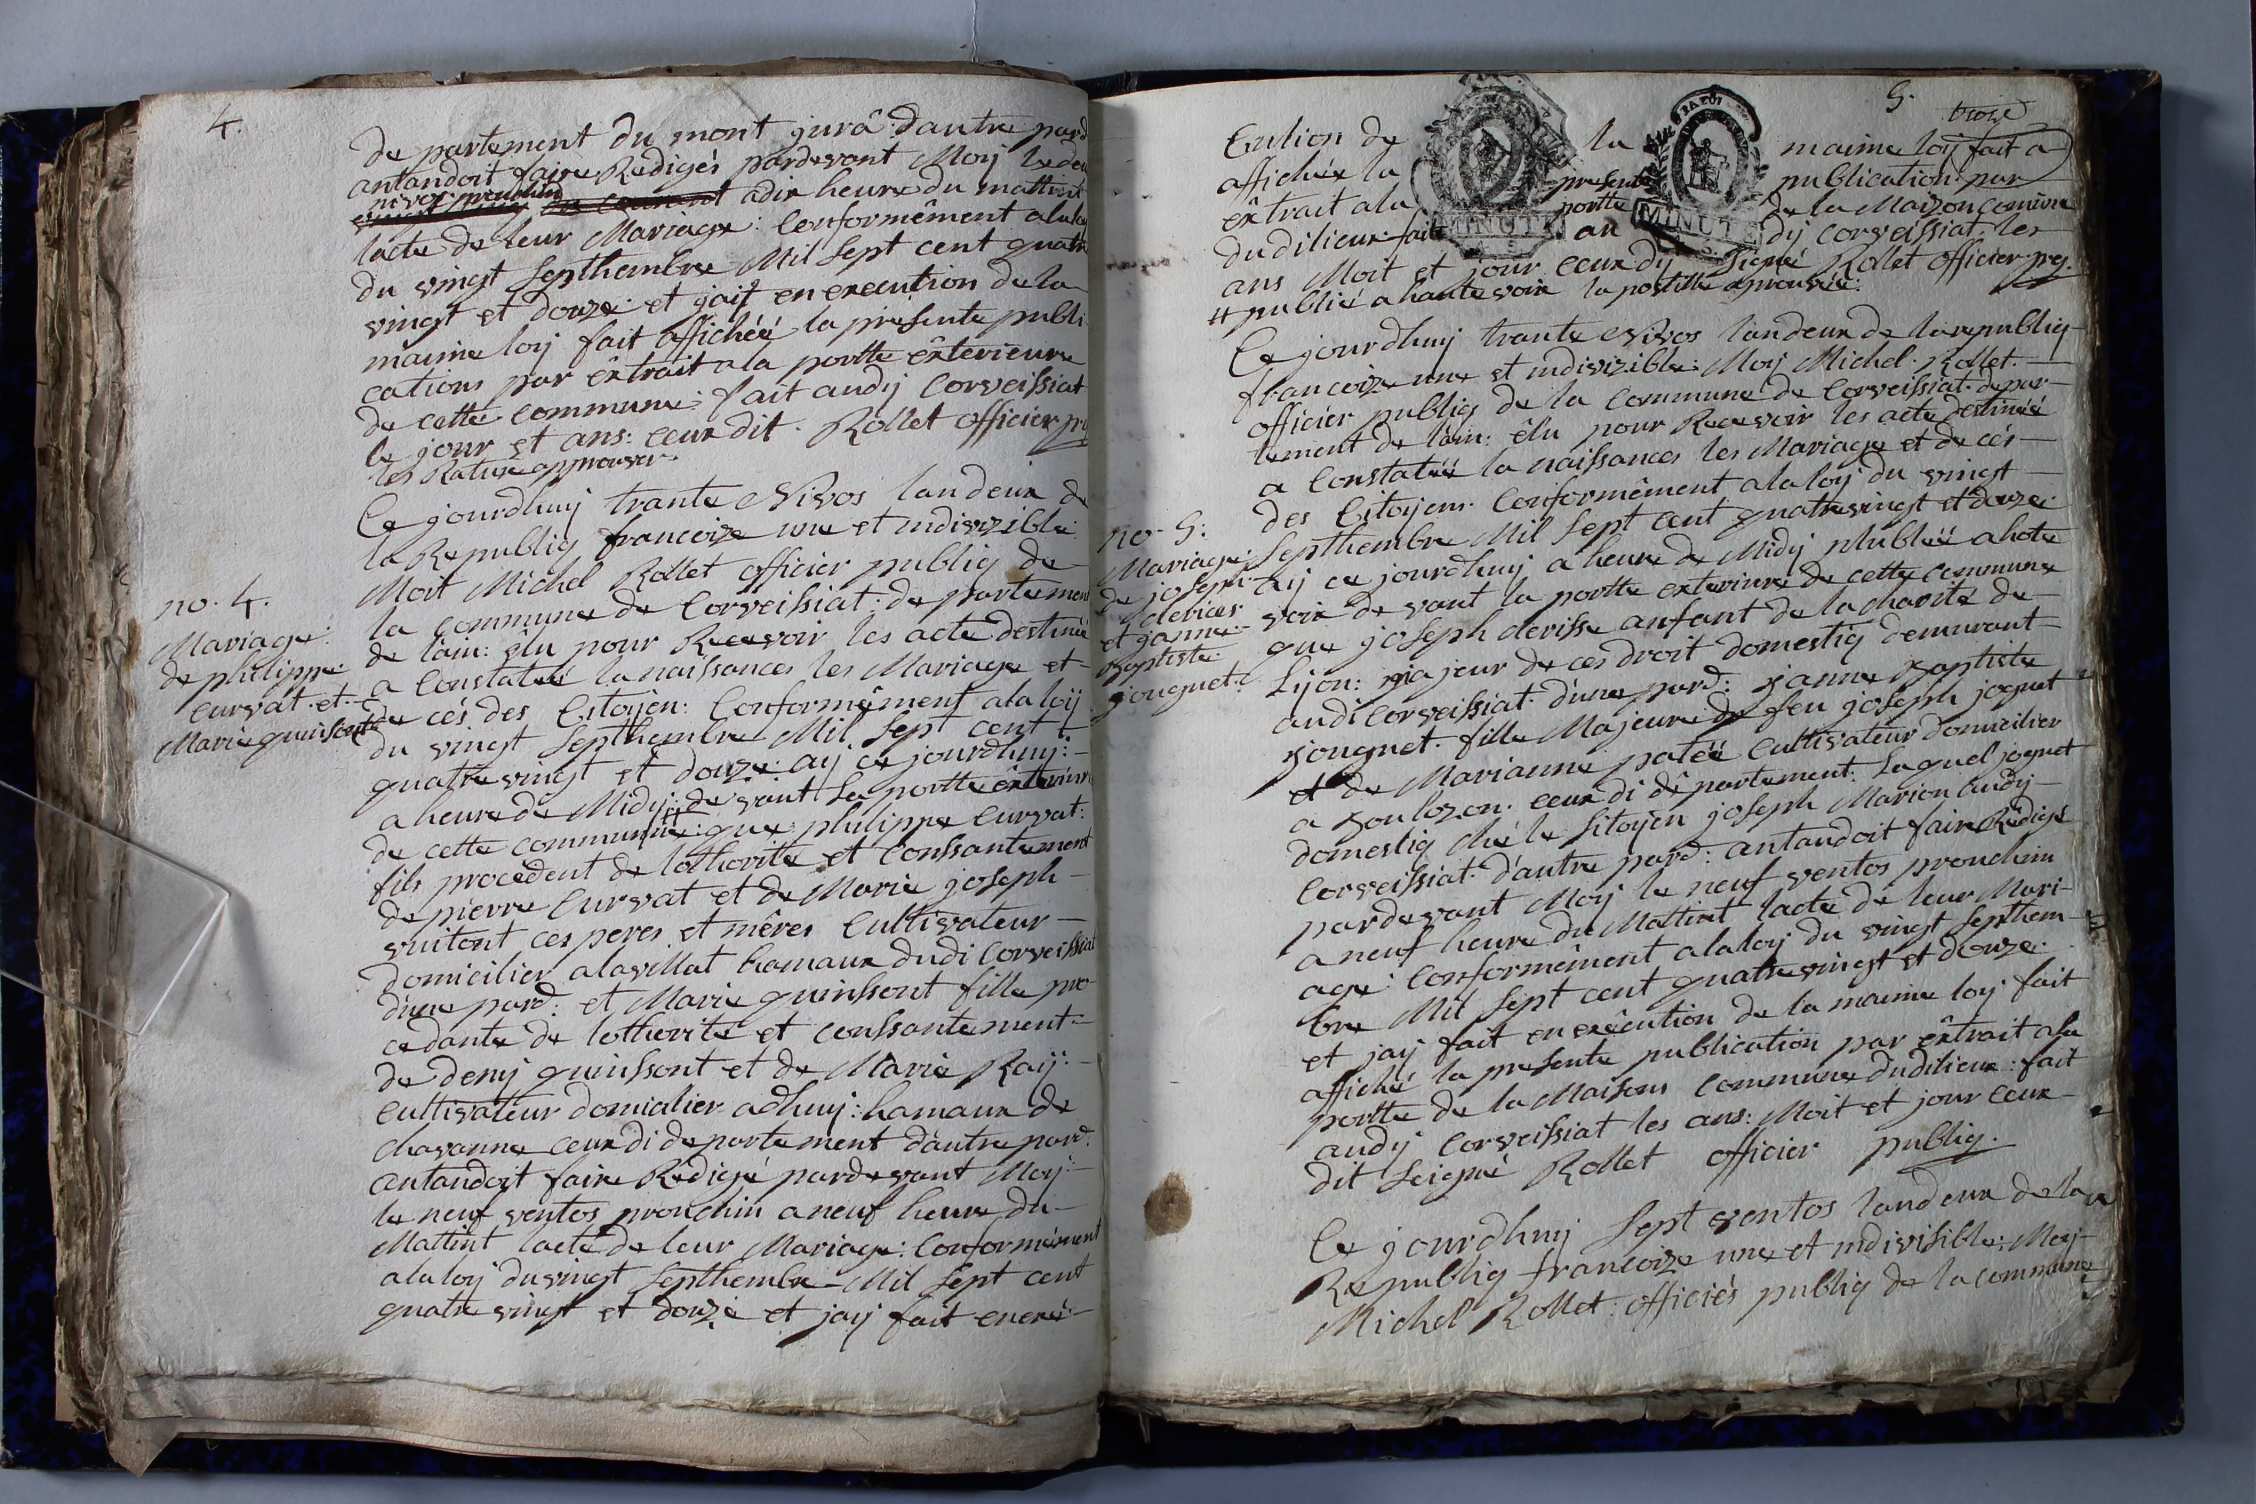 4.
de partement du mont jurâ d'autre pard
antandoit faire Redigés pardevant Moij le deu
nivos prouchin
adix heure du mattint
lacte de leur Mariage: Conformêment alaloij
du vingt Septhembre Mil Sept cent quatre
vingt et douze: et jaij en execution de la
maime loij fait affichéé la presente publi
cations par êxtrait ala portte êxterieure
de cette commune: fait audij Corveissiat
le jour et ans: ceux dit. Rollet officier pg
les Rature approuver.
Ce jourdhuij trante Nivos landeux de
la Republig francoize une et indivizible
Moit Michel Rollet officier publig de
la commune de Corveissiat: de partement
de lâin: êlu pour Recevoir les acte destinéé
a Constatéé la naissances les Mariage et
de cés des Citoijen: Conformêment alaloij
du vingt Septhembre Mil Sept cent
quatre vingt et douze: aij ce jourdhuij:
a heure de Midij: de vant La portte êxterieure
de cette commune: que philippe Curvat:
fils procedent de lothorité et Conssantement
de pierre Curvat et de Marie joseph
vuitont ces peres et mêres Cultivateur
domicilier alavillat hamaux dudi Corveissiat
dúne pard: et Marie guinssont fille pro-
cedante de lothorité et conssantement
de denij guinssont et de Marie Raij:
Cultivateur domicilier adhuij: hamaux de
chavanne ceux di de partement dàutre pard:
antandoit faire Redigé pardevant Moij:
le neuf ventos prouchin a neuf heure du
Mattint lacté de leur Mariage: Conformêment
alaloij du vingt Septhembre Mil Sept cent
quatre vingt et douze et jaij fait enexé-
no. 4.
Mariage:
de philippe
curvat. et
Marie guinsont
5.
troize
Cution de la maime loij fait a
affichér la presente publication par
êxtrait ala portte de la Maizon comine
dudilieux: fait au dij corveissiat: les
MINUTE
MINUTE
ans Moit et jour ceux dij Signé Rollet officier pg.
# publié a haute voix la postille aprouvéé:
Ce jourdhuij trante Nivos landeux de larepublig
francoize une et indivizible: Moij Michel. Rollet.
officier publig de la commune de Corveissiat. depar-
tement de lâin: êlu pour Recevoir les acte destinéé
a Constatéé la naissances les Mariage et de cés
des Citoijens. Conformêment alaloij du vingt
Septhembre Mil Sept cent quatrevingt et douze.
Aij ce jourdhuij a heure de Midij publiéé ahote
voix de vant la portte exterieure de cette commune
que joseph derisse anfant de lacharité de
Lijon: majeur de ces droit domestig demurant
audi Corveissiat. dúne pard: janne baptiste
jouguet. fille Majeure de feu joseph joguet
et de Marianne patéé Cultivateur domicilier
a boulozon. ceux di dêpartement. Laquel joguet
domestig ché le Sitoijen joseph Marion audij
Corveissiat. dáutre pard: antandoit faire Redigé
pardevant Moij le neuf ventos prouchin
a neuf heure du Mattint lacte de leur Mari-
age: Conformêment alaloij du vingt Septhem-
bre Mil Sept cent quatre vingt et douze.
et jaij fait en exêcution de la maime loij fait
affiché la presente publication par êxtrait ala
portte de la Maisons Commune dudilieux: fait
audij Corveissiat les ans: Moit et jour ceux
dit Seigné Rollet officier publig.
Ce jourdhuij Sept ventos landeux de la
Republig francoize une et indivisible: Moij
Michel Rollet: officiés publig de lacommune
no. 5:
Mariage:
de joseph
derices
et janne
baptiste
jouguet: